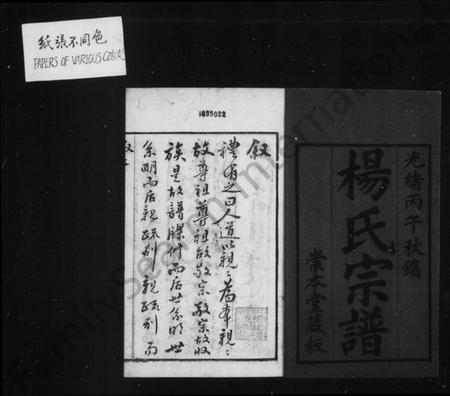 紙張不同色
PAPERS OF VARIOUS COLORS
1035022
光緒丙午秋鐫
楊氏宗譜
崇本堂藏板
叙
禮有之曰人道以親〻為本親〻
故尊祖尊祖故敬宗敬宗故收
族是故譜牒修而后世系明世
系明而后親疏別親疏別而
FamilySearch International